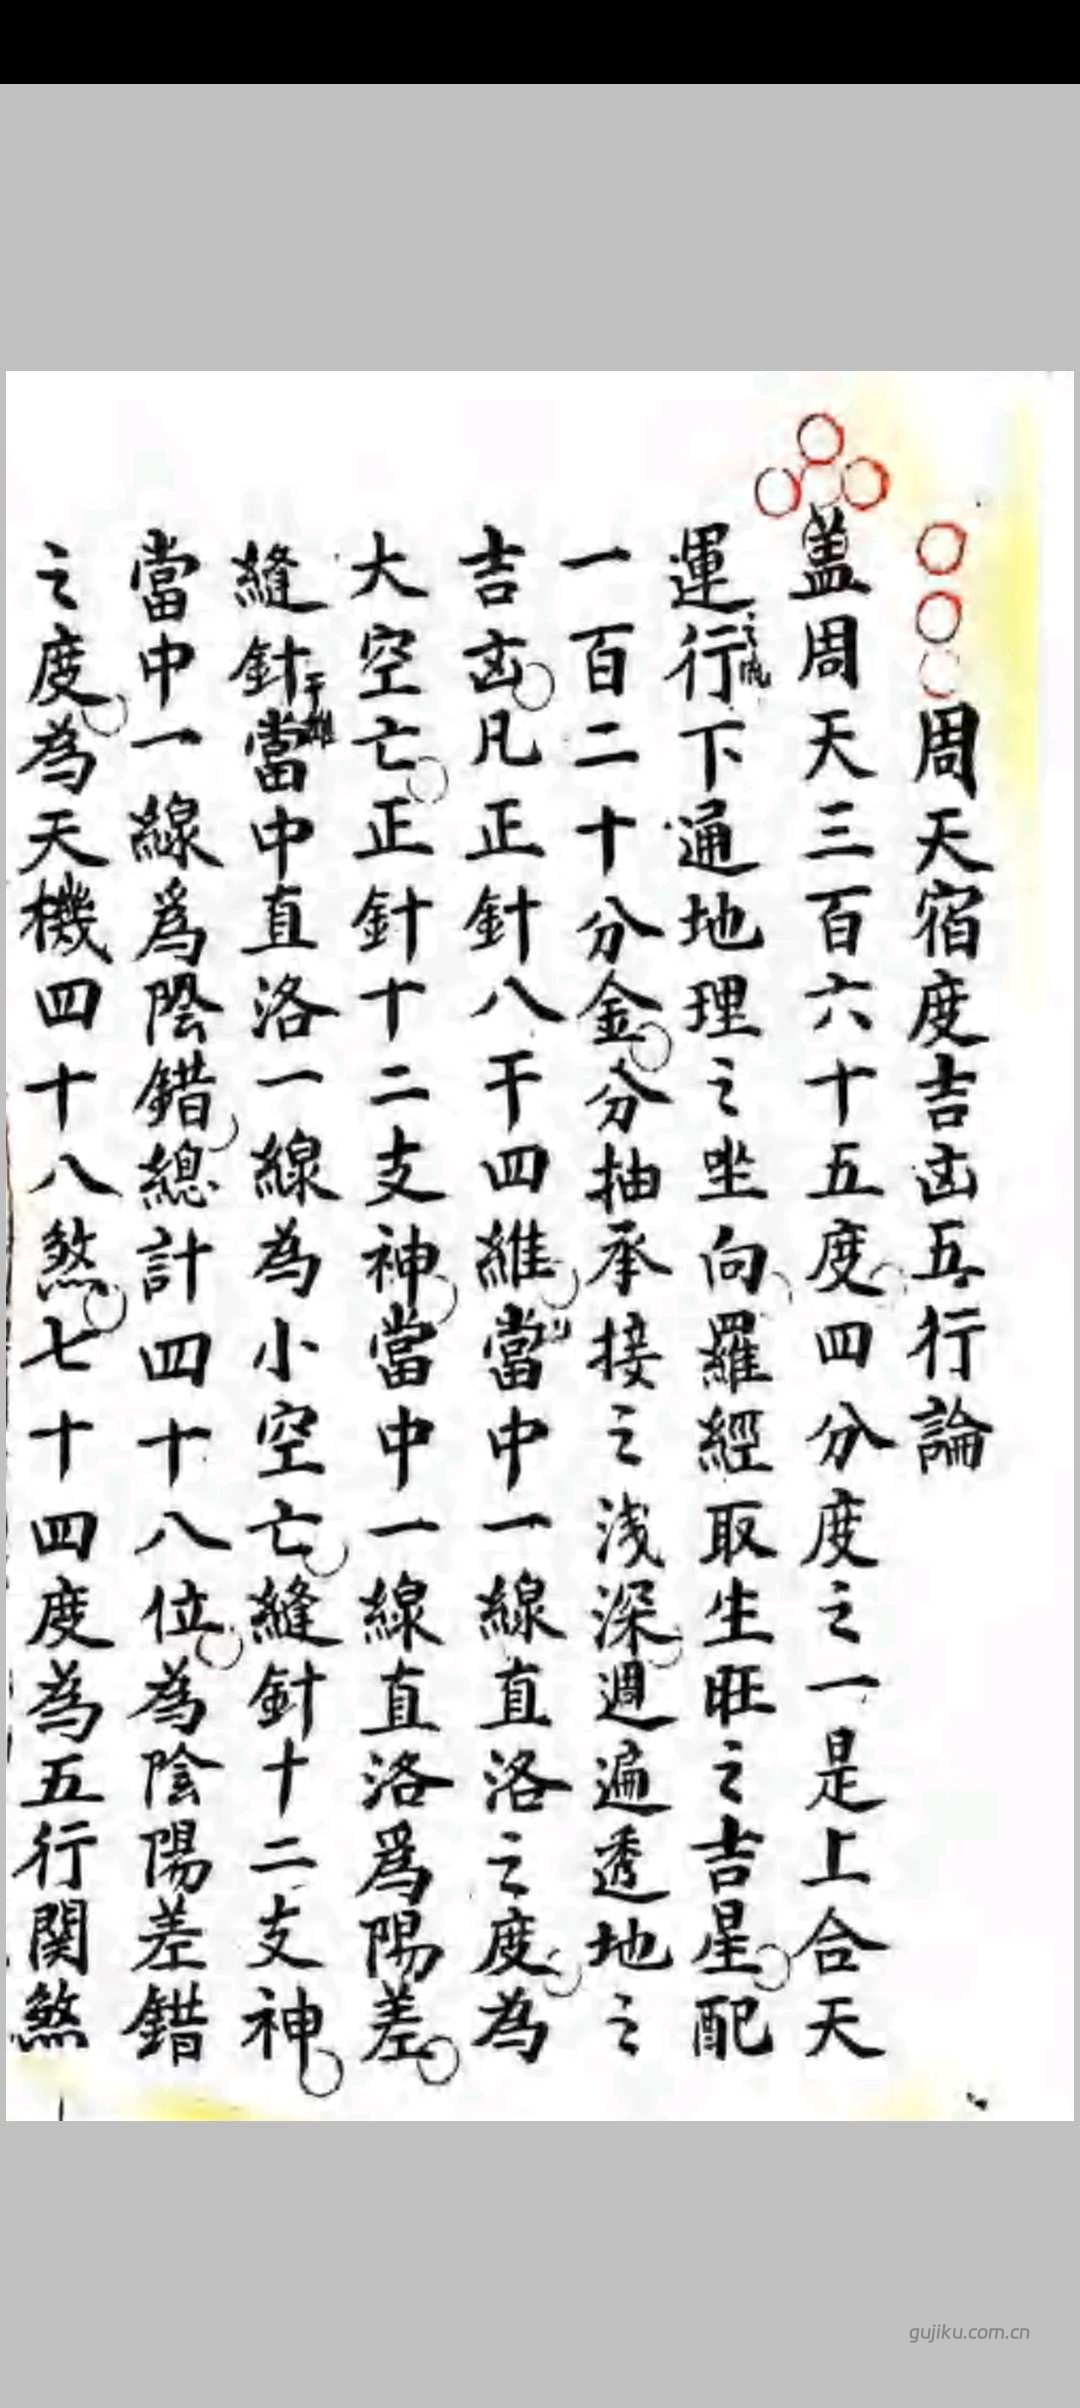 周天宿度吉凶五行論
盖周天三百六十五度四分度之一是上合天
運行下通地理之坐向羅經取生旺之吉星配
一百二十分金分抽承接之浅深週遍透地之
吉凶凡正針八干四維當中一線直洛之度為
大空亡正針十二支神當中一線直洛爲陽差
縫針干維當中直洛一線為小空亡縫針十二支神
當中一線爲陰錯總計四十八位為陰陽差錯
之度為天機四十八煞七十四度為五行関煞
gujiku.com.cn